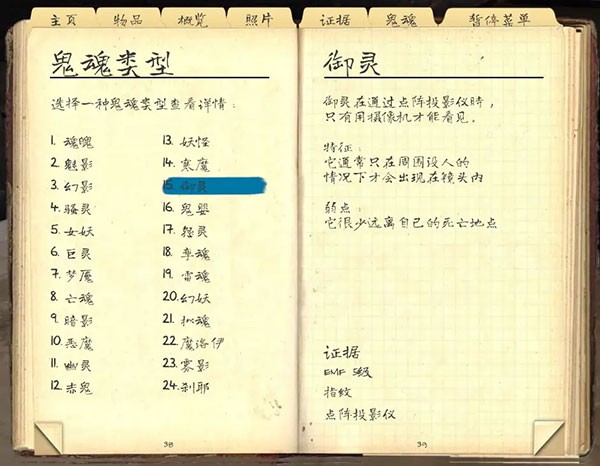 主页
物品
概览
照片
证据
鬼魂
暂停菜单
鬼魂类型
选择一种鬼魂类型查看详情:
1. 魂魄
2. 魅影
3. 幻影
4. 骚灵
5. 女妖
6. 巨灵
7. 梦魇
8. 亡魂
9. 暗影
10. 恶魔
11. 幽灵
12. 赤鬼
13. 妖怪
14. 寒魔
15. 御灵
16. 鬼婴
17. 怨灵
18. 孪魂
19. 雷魂
20. 幻妖
21. 拟魂
22. 魔洛伊
23. 雾影
24. 刹耶
38
御灵
御灵在通过点阵投影仪时,
只有用摄像机才能看见.
特征:
它通常只在周围没人的
情况下才会出现在镜头内
弱点:
它很少远离自己的死亡地点
证据
EMF 5级
指纹
点阵投影仪
39